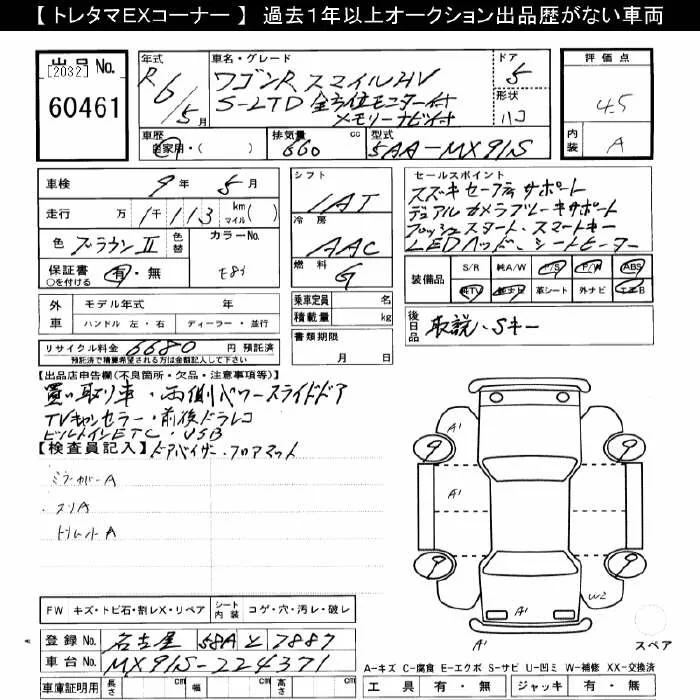 【 トレタマEXコーナー 】 過去1年以上オークション出品歴がない車両
出品No.
[2032]
60461
年式
R6/5月
車名・グレード
ワゴンR スマイルHV
S-LTD 全方位モニター付
メモリーナビ付
ドア
5
形状
ハコ
評価点
4.5
内装
A
車歴
自家用・( )
排気量 cc
660
型式
5AA-MX91S
車検 9年 5月
走行 万 1千113 km マイル( )
色 ブラウンⅡ 色替
カラーNo.
保証書 ○を付ける 有・無
外車
モデル年式 年
ハンドル 左・右 ディーラー・並行
リサイクル料金 6680 円 預託済
預託済で積算希望される方は金額記入して下さい
シフト
IAT
冷房
AAC
燃料
G
乗車定員 名
積載量 kg
書類期限
月 日
セールスポイント
スズキセーフティサポート
デュアルカメラブレーキサポート
プッシュスタート・スマートキー
LEDヘッド、シートヒーター
装備品
S/R 純A/W P/S P/W ABS
純TV 純ナビ 革シート 外ナビ エアB
後日品
取説・Sキー
【出品店申告欄(不良箇所・欠品・注意事項等)】
買い取り車・両側パワースライドドア
TVキャンセラー・前後ドラレコ
ビルトインETC・USB
【検査員記入】 ドアバイザー・フロアマット
ミラーカバーA
スリA
トリムットA
A1
A1
A1
A1
W2
9
9
9
9
スペア
FW キズ・トビ石・割レX・リペア
シート内装 コゲ・穴・汚レ・破レ
登録No. 名古屋 58A と 7887
車台No. MX91S-224371
車庫証明用 長さ cm 幅 cm 高さ cm
A-キズ C-腐食 E-エクボ S-サビ U-凹ミ W-補修 XX-交換済
工具 有・無 ジャッキ 有・無